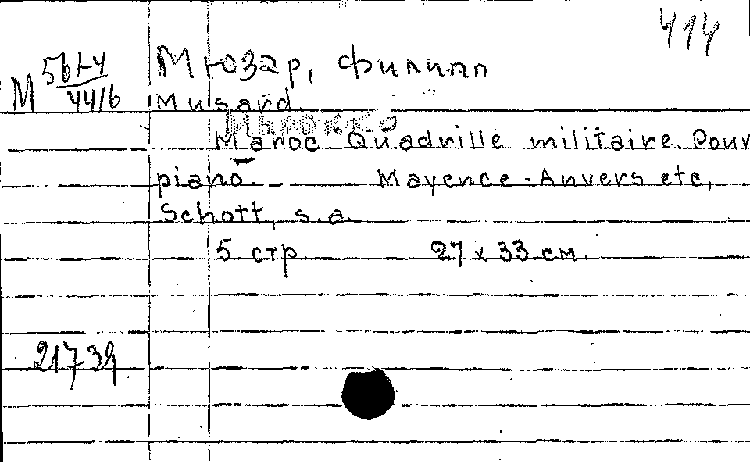 414
М 561-4
44/6
Мюзар, Филипп
Musard.
Марокко
Maroc Quadrille militaire. Pour
piano. Mayence-Anvers etc,
Schott, s.a.
5 стр 27 x 33 см.
21739